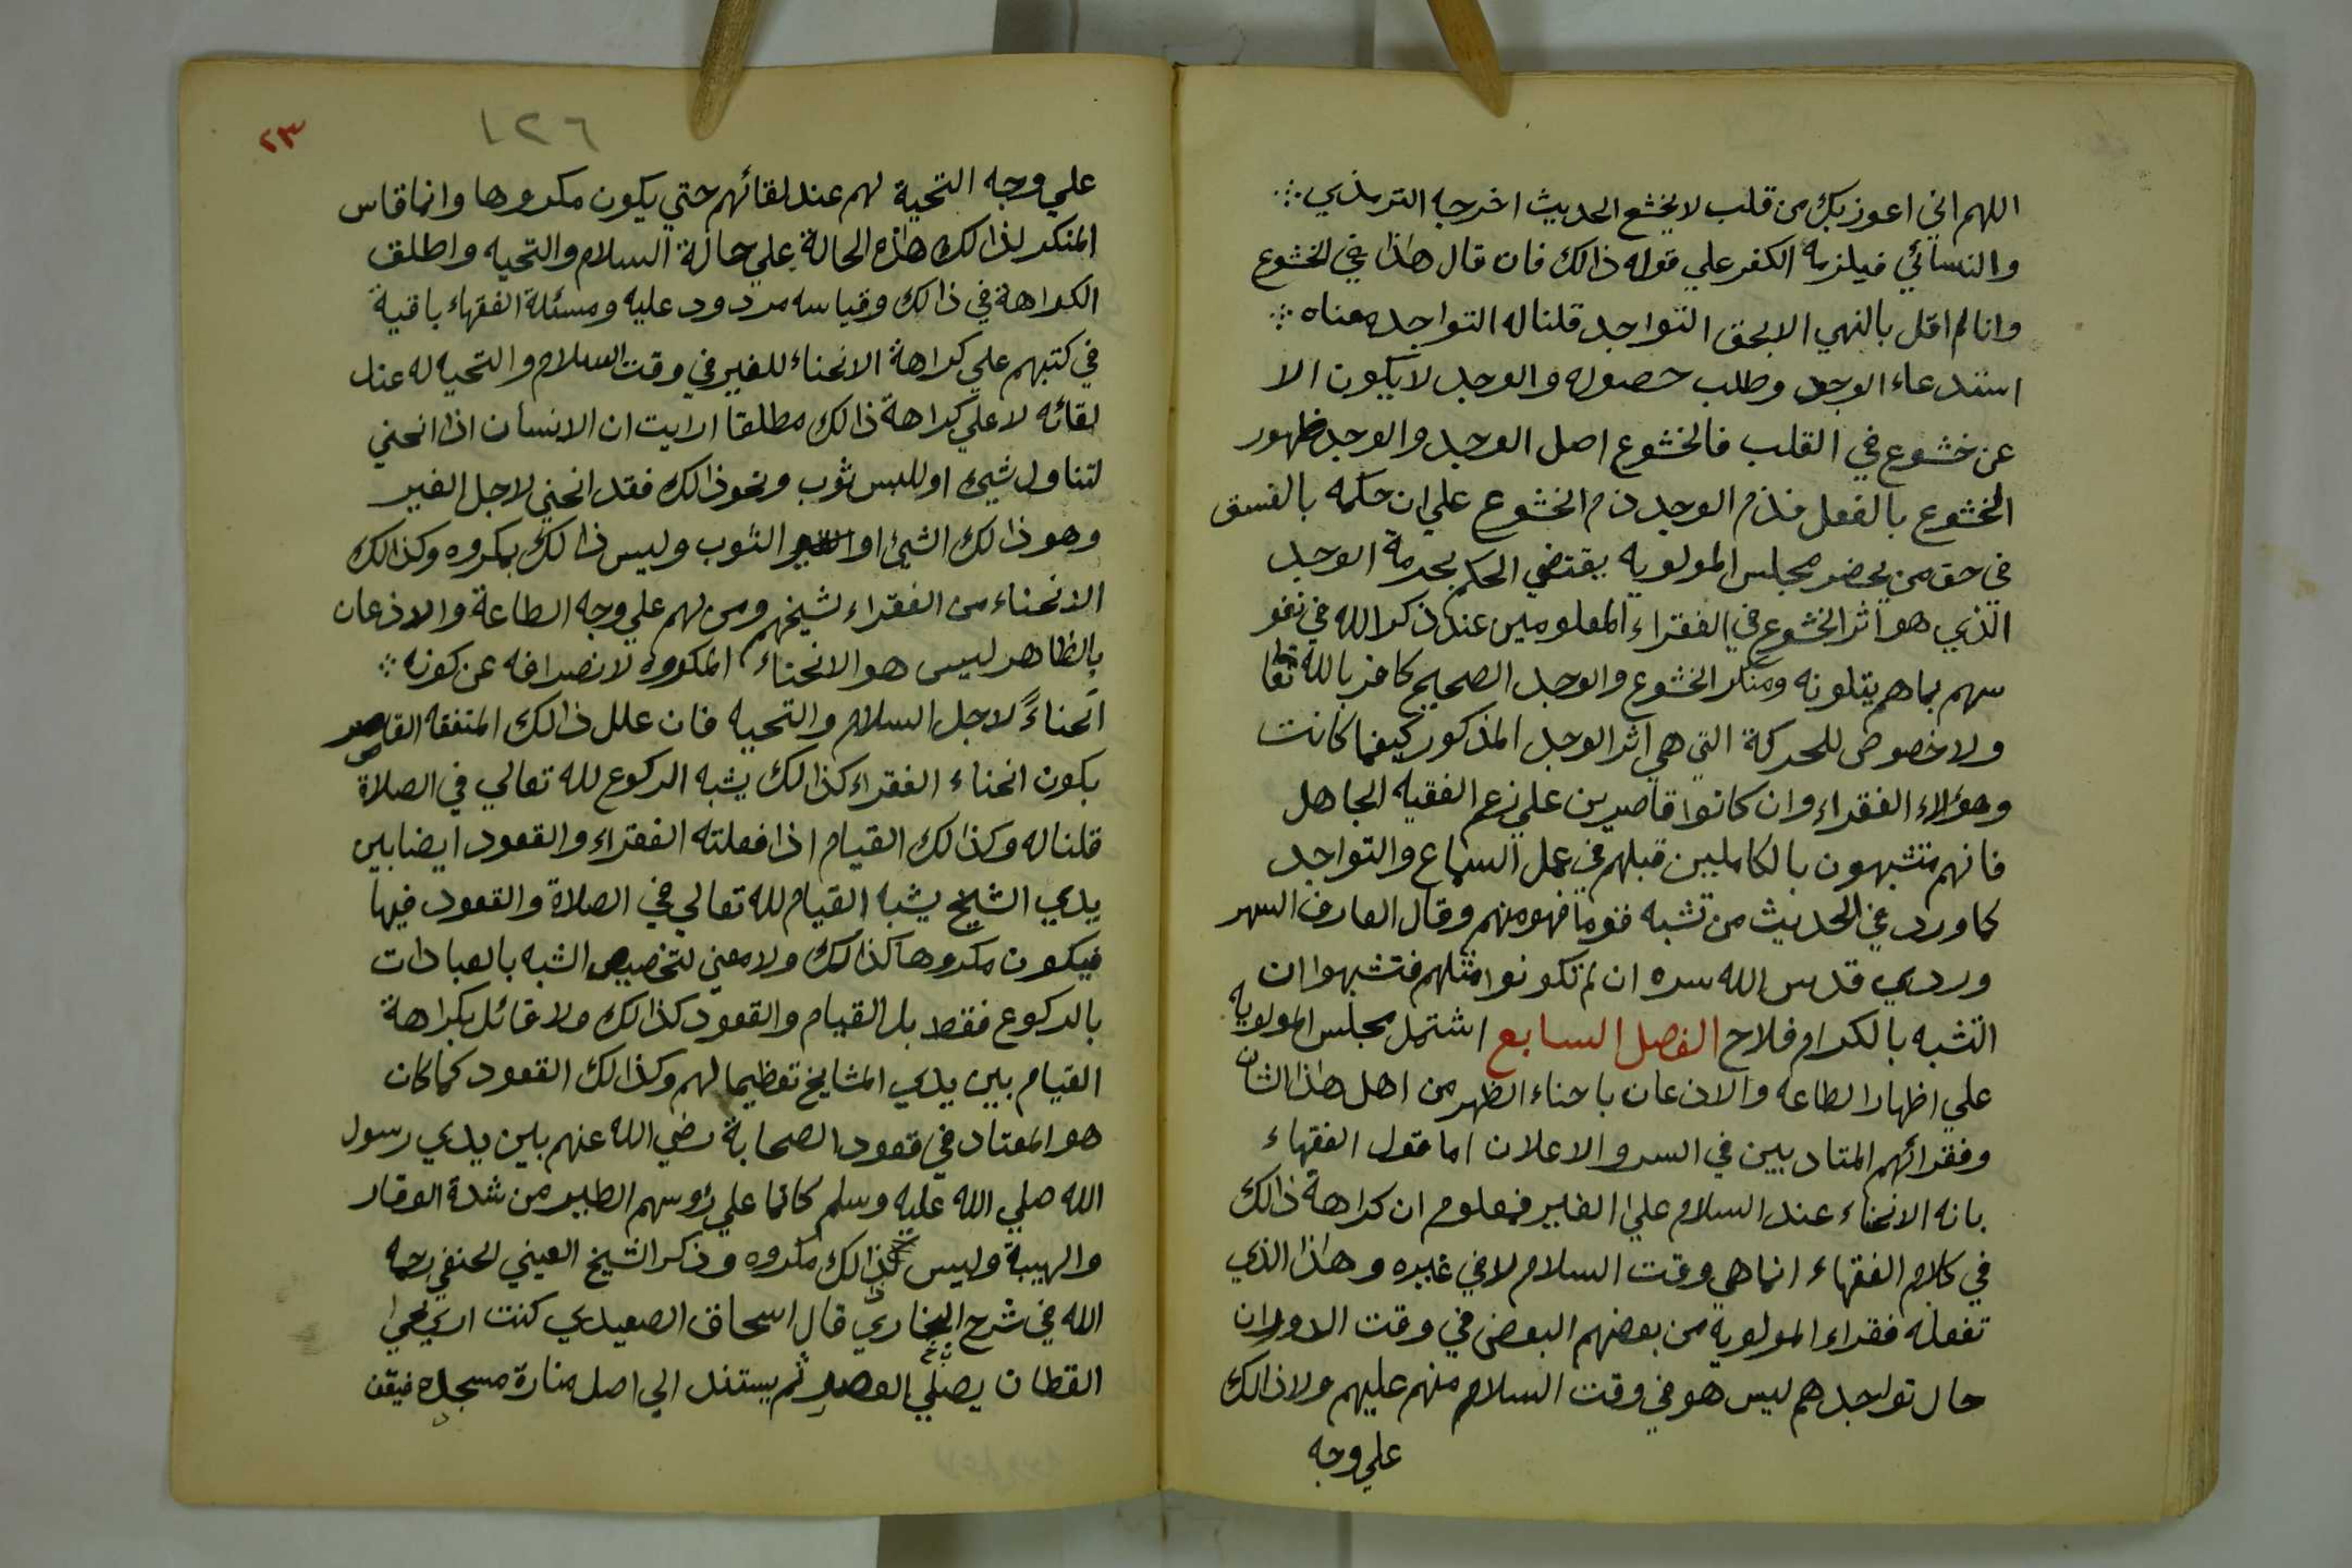 اللهم اني اعوذ بك من قلب لا يخشع الحديث اخرجه الترمذي
والنسائي فيلزمه الكفر علي قوله ذالك فان قال هاذا في الخشوع
وانا لم اقل بالنهي الا بحق التواجد قلنا له التواجد معناه
استدعاء الوجد وطلب حصوله والوجد لا يكون الا
عن خشوع في القلب فالخشوع اصل الوجد والوجد ظهور
الخشوع بالفعل فذم الوجد ذم الخشوع علي ان حكمه بالفسق
في حق من يحضر مجلس المولويه يقتضي الحكم بحرمة الوجد
الذي هو اثر الخشوع في الفقراء المعلومين عند ذكر الله في نفو
سهم بما هم يتلونه ومنكر الخشوع والوجد الصحيح كافر بالله تعا
ولا خصوص للحركة التي هي اثر الوجد المذكور كيفما كانت
وهؤلاء الفقراء وان كانوا قاصرين علي زعم الفقيه الجاهل
فانهم متشبهون بالكاملين قبلهم في عمل السماع والتواجد
كما ورد في الحديث من تشبه قوما فهو منهم وقال العارف السهر
وردي قدس الله سره ان لم تكونوا مثلهم فتشبهوا ان
التشبه بالكرام فلاح الفصل السابع اشتمل مجلس المولويه
علي اظهار الطاعه والاذعان باحناء الظهر من اهل هاذا الشان
وفقرائهم المتادبين في السر والاعلان اما قول الفقهاء
بانه الانحناء عند السلام علي الغير فمعلوم ان كراهة ذالك
في كلام الفقهاء انما هي وقت السلام لا في غيره وهاذا الذي
تفعله فقراء المولوية من بعضهم البعض في وقت الدوران
حال تواجدهم ليس هو في وقت السلام منهم عليهم ولا ذالك
علي وجه
٢٣
١٢٦
علي وجه التحية لهم عند لقائهم حتي يكون مكروها وانما قاس
المنكر لذالك هاذه الحالة علي حالة السلام والتحيه واطلق
الكراهة في ذالك وقياسه مردود عليه ومسئلة الفقهاء باقية
في كتبهم علي كراهة الانحناء للغير في وقت السلام والتحيه له عند
لقائه لا علي كراهة ذالك مطلقا ارايت ان الانسان اذا انحني
لتناول شيئ او للبس ثوب ونحو ذالك فقد انحني لاجل الغير
وهو ذالك الشيئ او الثوب وليس ذالك بمكروه وكذالك
الانحناء من الفقراء لشيخهم ومن لهم علي وجه الطاعة والاذعان
بالظاهر ليس هو الانحناء المكروه لانصرافه عن كونه
انحناءً لاجل السلام والتحيه فان علل ذالك المتفقه القاصر
بكون انحناء الفقراء كذالك يشبه الركوع لله تعالي في الصلاة
قلنا له وكذالك القيام اذا فعلته الفقراء والقعود ايضا بين
يدي الشيخ يشبه القيام لله تعالي في الصلاة والقعود فيها
فيكون مكروها كذالك ولا معني لتخصيص الشبه بالعبادات
بالركوع فقط بل القيام والقعود كذالك ولا قائل بكراهة
القيام بين يدي المشايخ تعظيما لهم وكذالك القعود كما كان
هو المعتاد في قعود الصحابة رضي الله عنهم بين يدي رسول
الله صلي الله عليه وسلم كانما علي رؤسهم الطير من شدة الوقار
والهيبة وليس ذالك مكروه وذكر الشيخ العيني الحنفي رحمه
الله في شرح البخاري قال اسحاق الصعيدي كنت اري يحي
القطان يصلي العصر ثم يستند الي اصل منارة مسجده فيقف